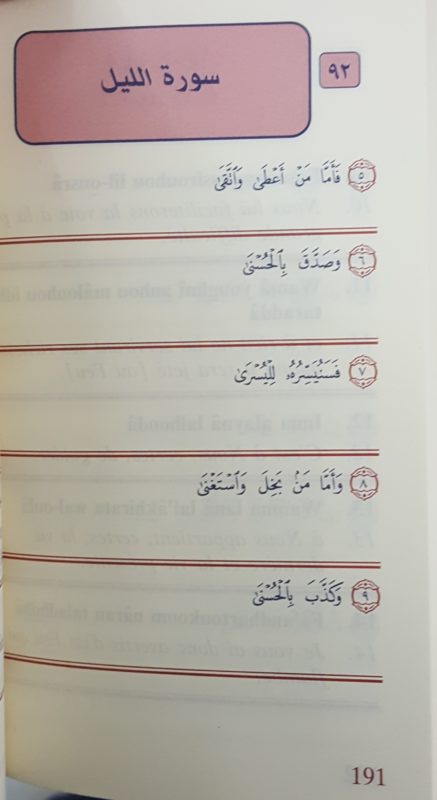 سورة الليل
٩٢
٥ فَأَمَّا مَنْ أَعْطَىٰ وَٱتَّقَىٰ
٦ وَصَدَّقَ بِٱلْحُسْنَىٰ
٧ فَسَنُيَسِّرُهُۥ لِلْيُسْرَىٰ
٨ وَأَمَّا مَنۢ بَخِلَ وَٱسْتَغْنَىٰ
٩ وَكَذَّبَ بِٱلْحُسْنَىٰ
191